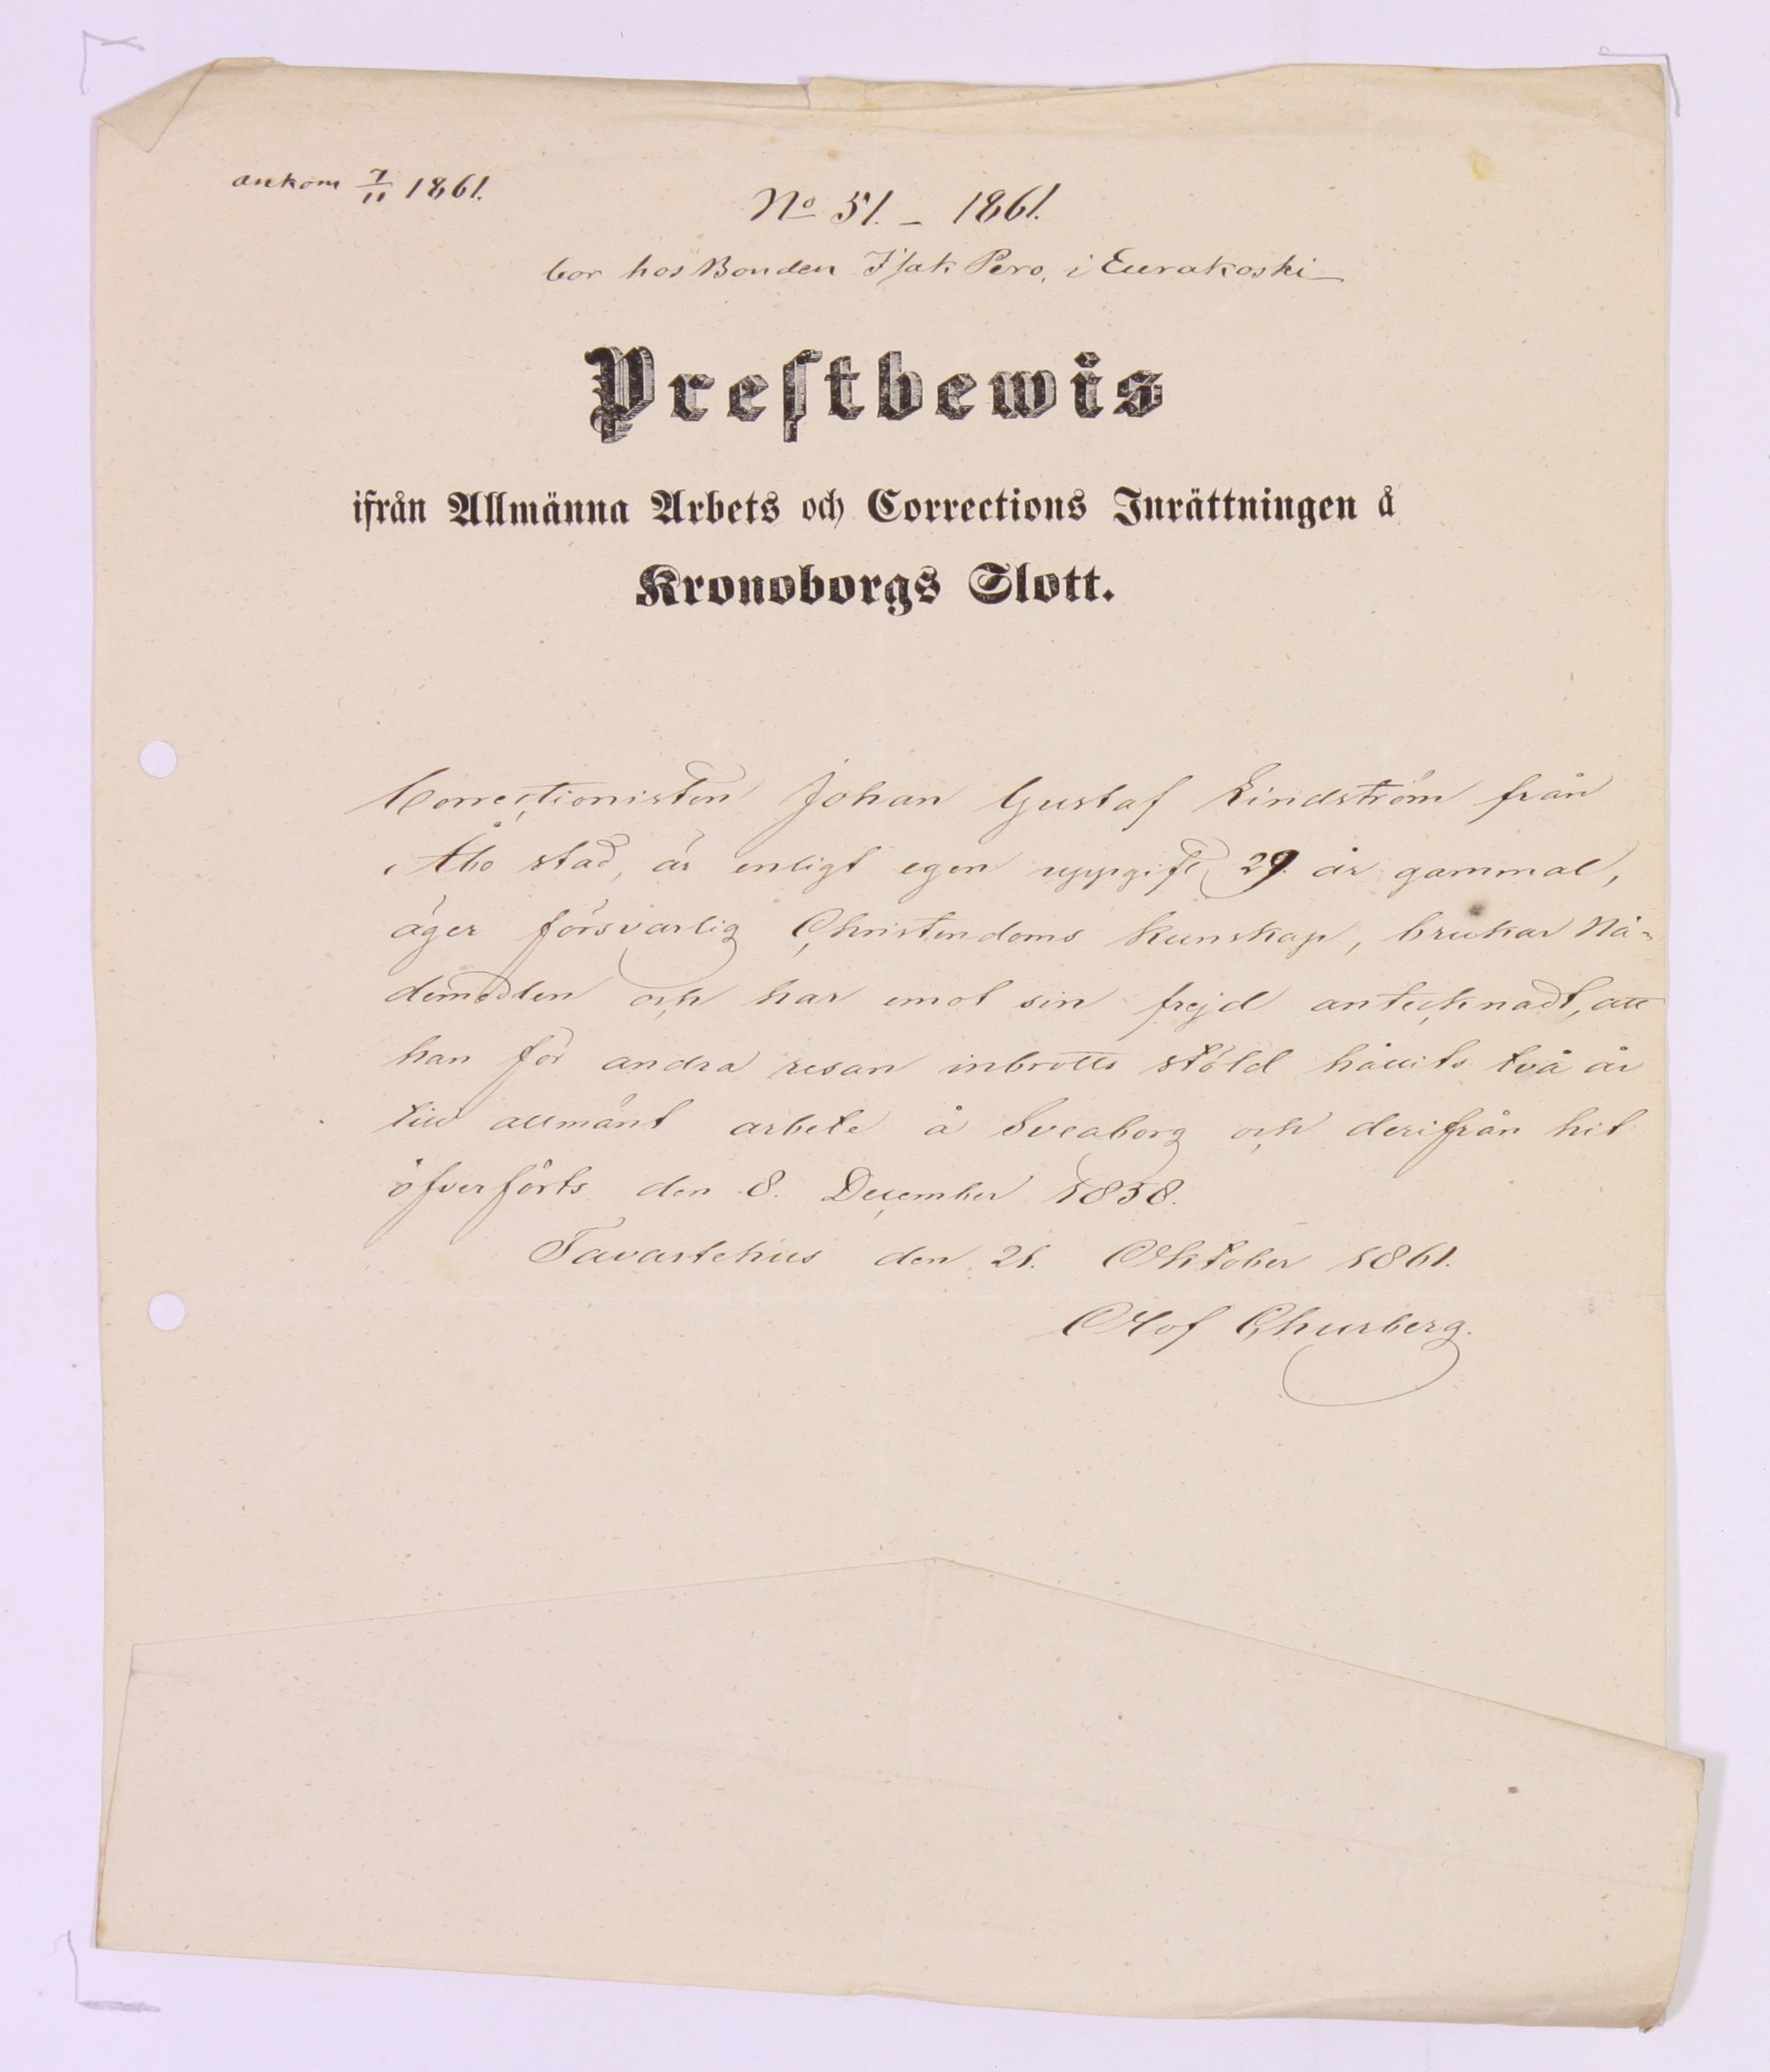 ankom 7/11 1861.
No 51. - 1861.
bor hos Bonden Isak Pero, i Eurakoski
Prestbewis
ifrån Allmänna Arbets och Corrections Inrättningen å
Kronoborgs Slott.
Correctionisten Johan Gustaf Lindström från
Åbo stad, är enligt egen uppgift 29. år gammal,
äger försvarlig Christendoms kunskap, brukar Nå-
demedlen och har emot sin frejd antecknadt, att
han för andra resan inbrotts stöld hållits två år
till allmänt arbete å Sveaborg och derifrån hit
öfverförts den 8. December 1858.
Tavastehus den 21. Oktober 1861.
Olof Churberg.